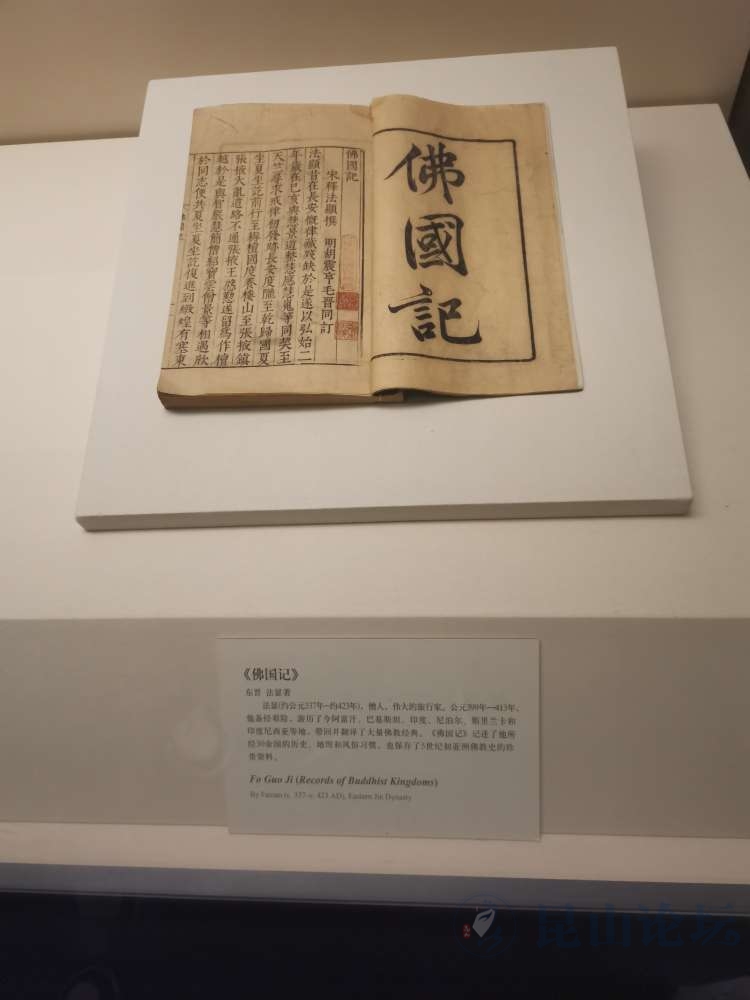 佛國記
佛國記
宋釋法顯撰 明胡震亨毛晉同訂
法顯昔在長安慨律藏殘缺於是遂以弘始二
年歲在己亥與慧景道整慧應慧嵬等同契至
天竺尋求戒律初發跡長安度隴至乾歸國夏
坐夏坐訖前行至耨檀國度養樓山至張掖鎮
張掖大亂道路不通張掖王慇懃遂留爲作檀
越於是與智嚴慧簡僧紹寶雲僧景等相遇欣
於同志便共夏坐夏坐訖復進到燉煌有塞東
《佛国记》
东晋 法显著
法显(约公元337年—约423年)，僧人，伟大的旅行家。公元399年—413年，
他备经艰险，游历了今阿富汗、巴基斯坦、印度、尼泊尔、斯里兰卡和
印度尼西亚等地，带回并翻译了大量佛教经典。《佛国记》记述了他所
经30余国的历史、地理和风俗习惯，也保存了5世纪初亚洲佛教史的珍
贵资料。
Fo Guo Ji (Records of Buddhist Kingdoms)
By Faxian (c. 337-c. 423 AD), Eastern Jin Dynasty
昆山论坛